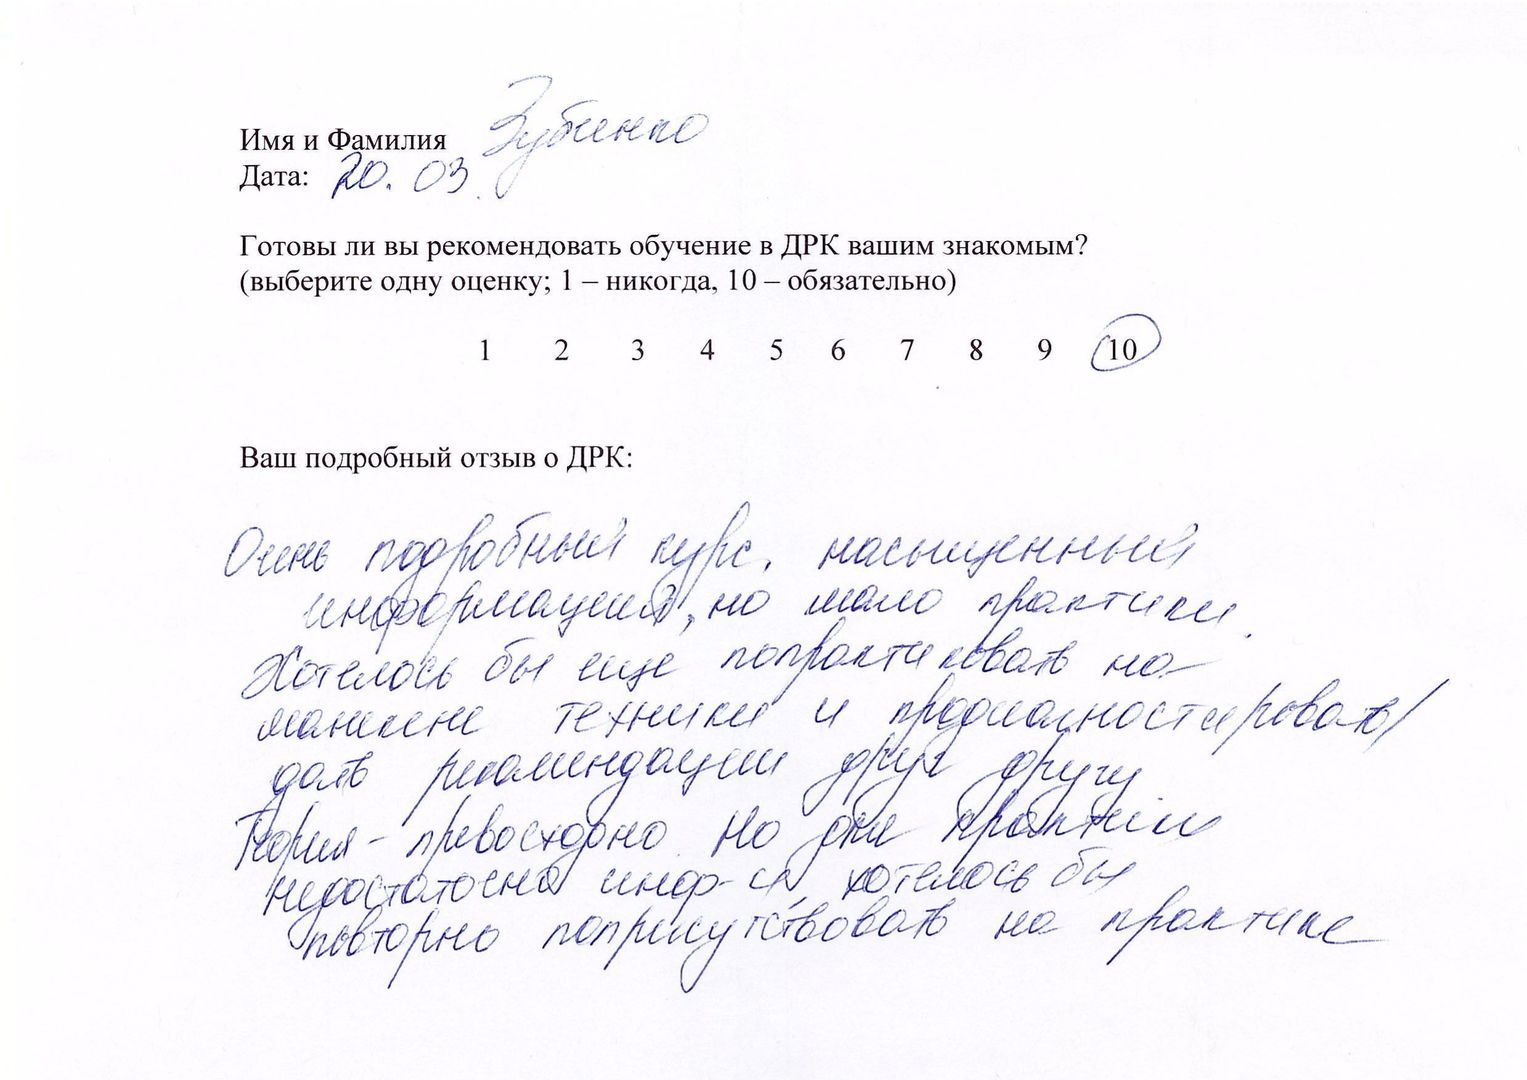 Имя и Фамилия Зубченко
Дата: 20.03.
Готовы ли вы рекомендовать обучение в ДРК вашим знакомым?
(выберите одну оценку; 1 – никогда, 10 – обязательно)
1 2 3 4 5 6 7 8 9 10
Ваш подробный отзыв о ДРК:
Очень подробный курс, насыщенный
информацией, но мало практики.
Хотелось бы еще попрактиковать на
манекене техники и продиагностировать/
дать рекомендации друг другу
Теория - превосходно. Но для практики
недостаточно инф-ии, хотелось бы
повторно поприсутствовать на практике